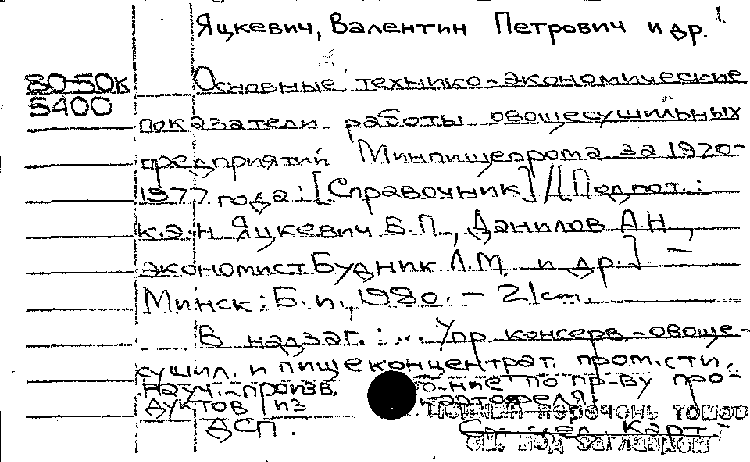 Яцкевич, Валентин Петрович и др.
80-50к Основные технико-экономические
5400
показатели работы овощесушильных
предприятий Минпищепрома за 1970-
1977 года: [Справочник] / [Подгот.:
к.э.н. Яцкевич В.П., Данилов А.Н.,
экономист Будник Л.М. и др.] –
Минск: Б. и., 1980. – 21 см.
В надзаг.: ... Упр. консерв., овоще-
сушил. и пищеконцентрат. пром-сти,
науч.-произв. об-ние по пр-ву про-
дуктов из картофеля
Полный перечень томов
ДСП. карт.
см. под заглавием